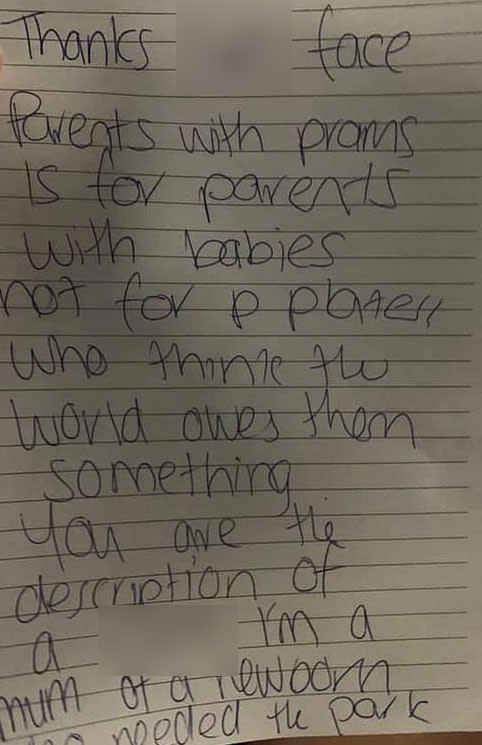 Thanks face
Parents with prams
is for parents
with babies
not for p plater
who think the
world owes them
something
You are the
description of
a I'm a
mum of a newborn
needed the park